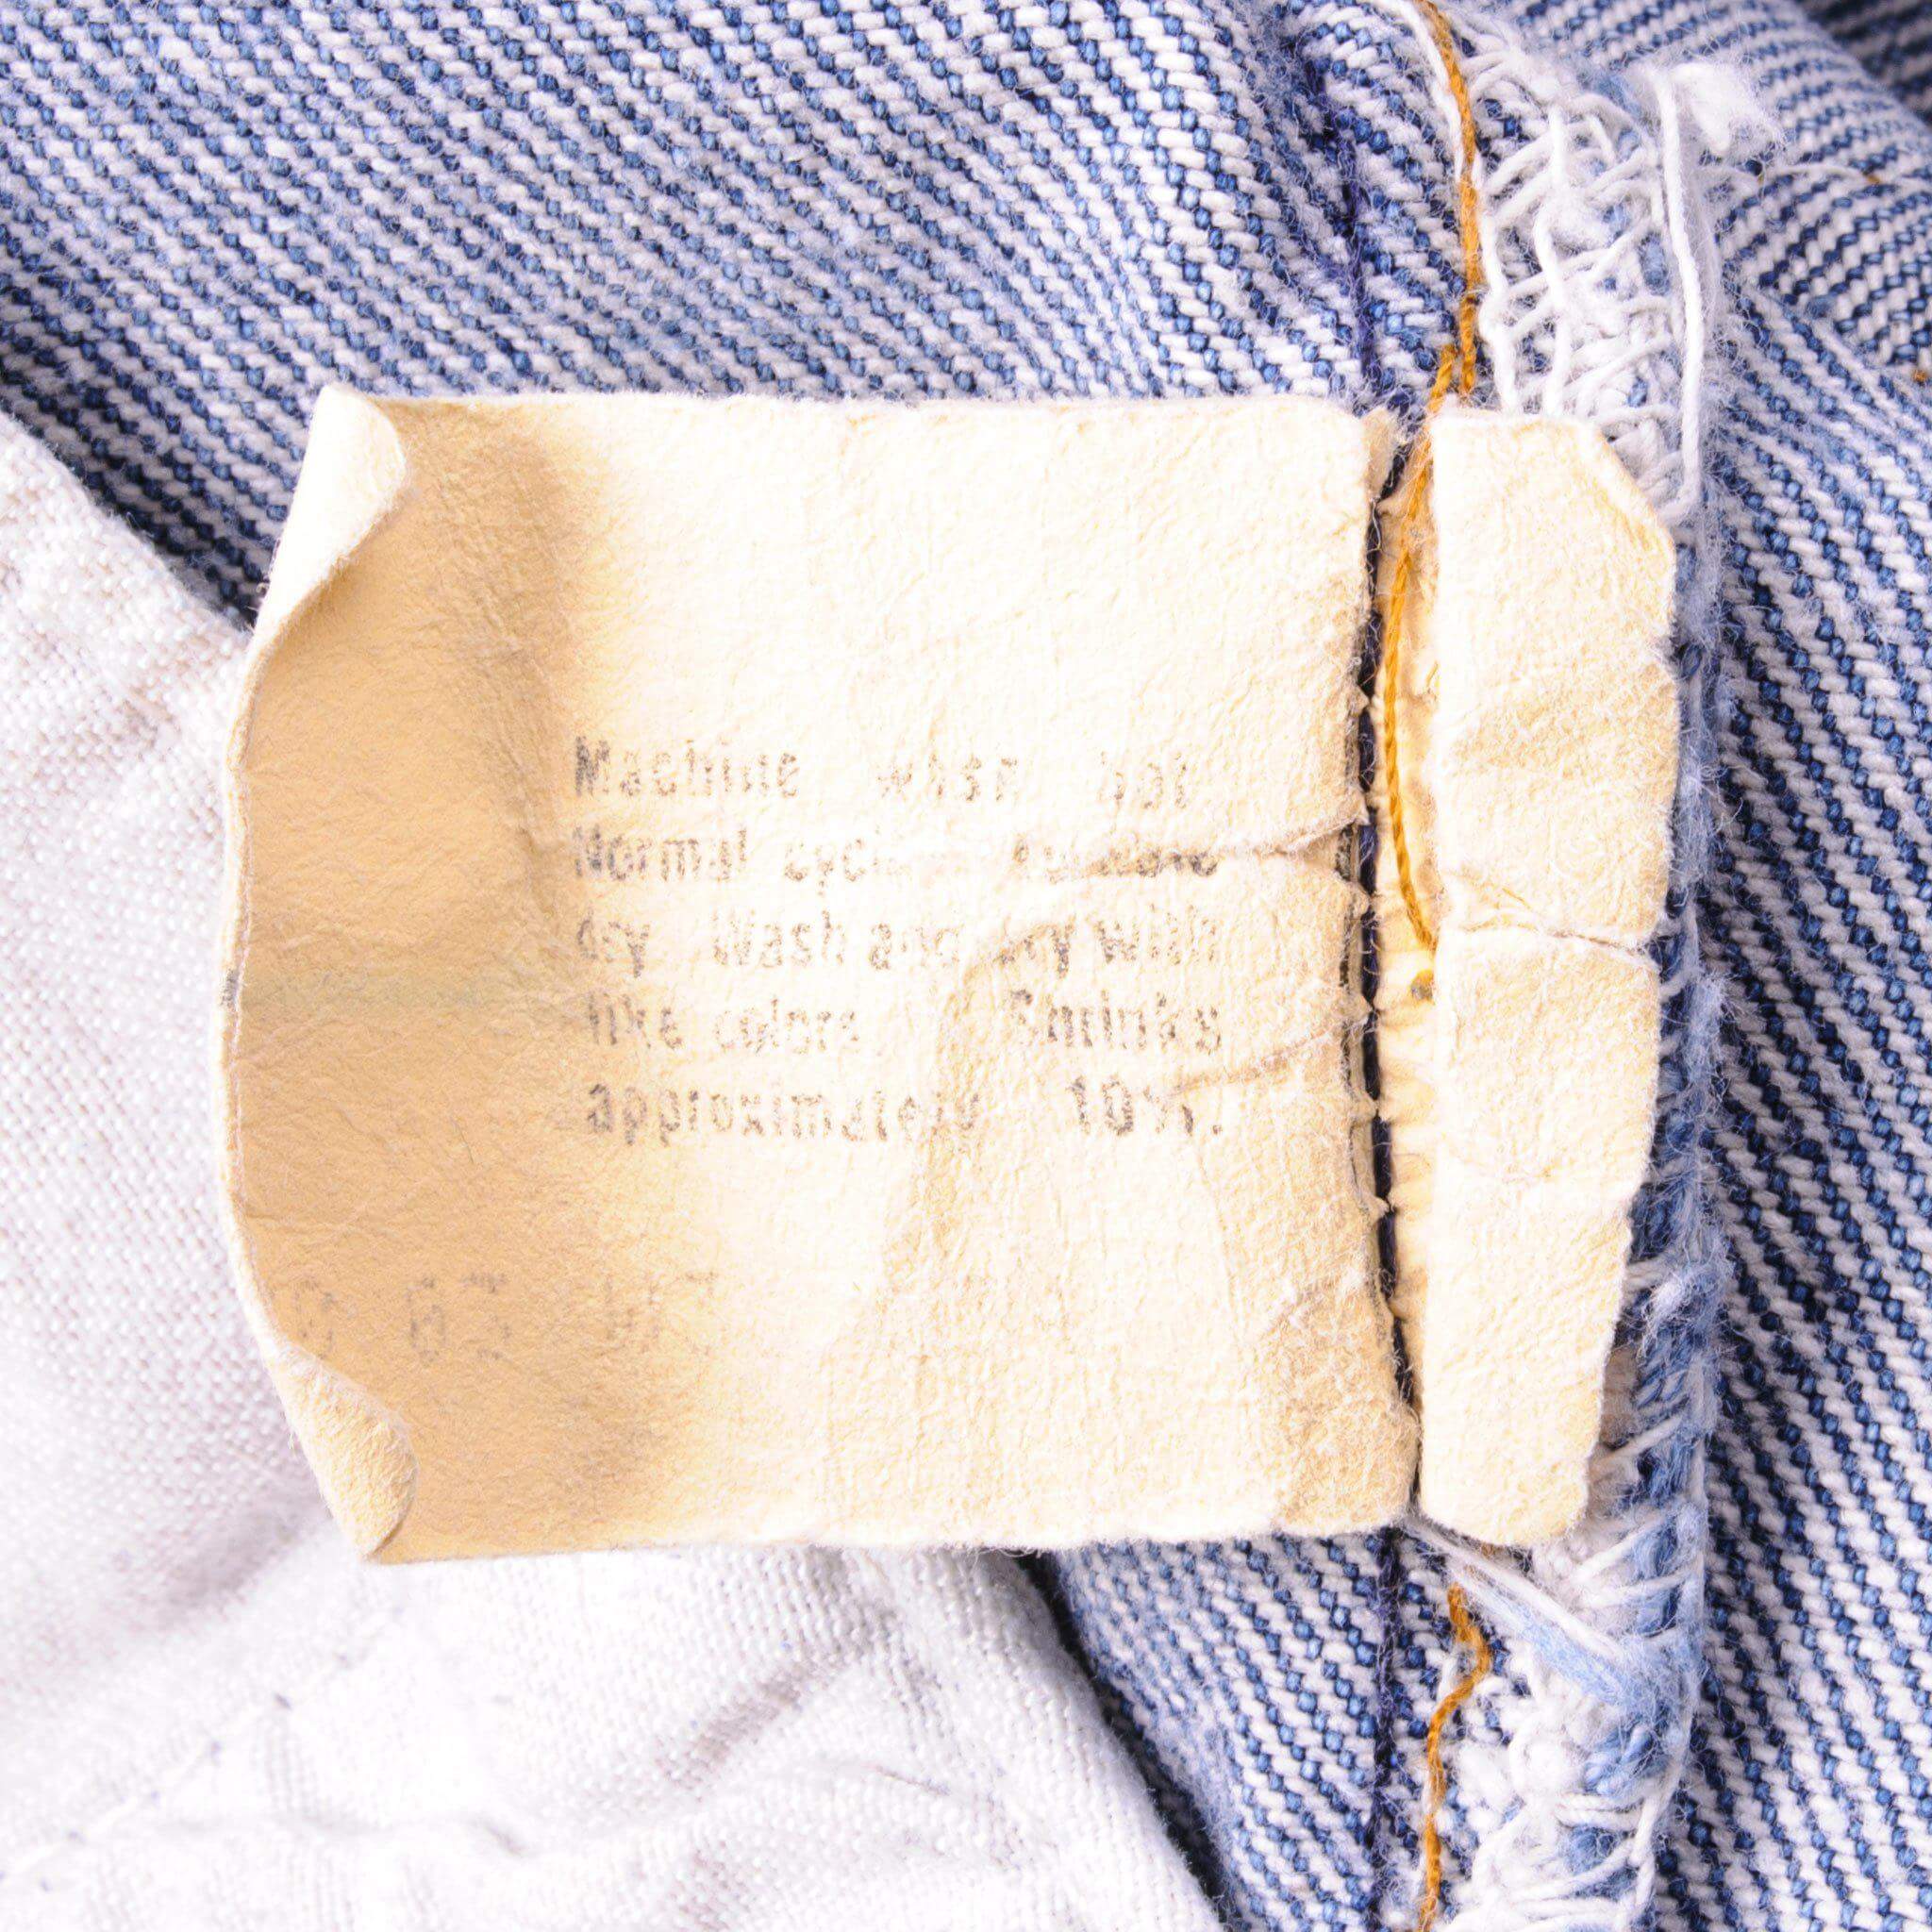 Machine wash hot
Normal cycle Tumble
dry Wash and dry with
like colors. Shrinks
approximately 10%.